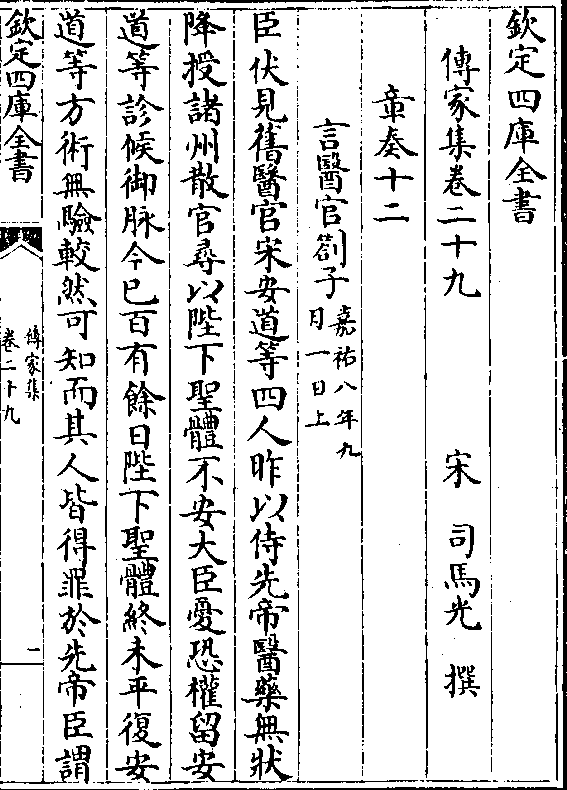 欽定四庫全書
傳家集卷二十九
宋 司馬光 撰
章奏十二
言醫官劄子嘉祐八年九
月一日上
臣伏見舊醫官宋安道等四人昨以侍先帝醫藥無狀
降授諸州散官尋以陛下聖體不安大臣憂恐權留安
道等診候御脉今已百有餘日陛下聖體終未平復安
道等方術無驗較然可知而其人皆得罪於先帝臣謂
欽定四庫全書
傳家集
卷二十九
一